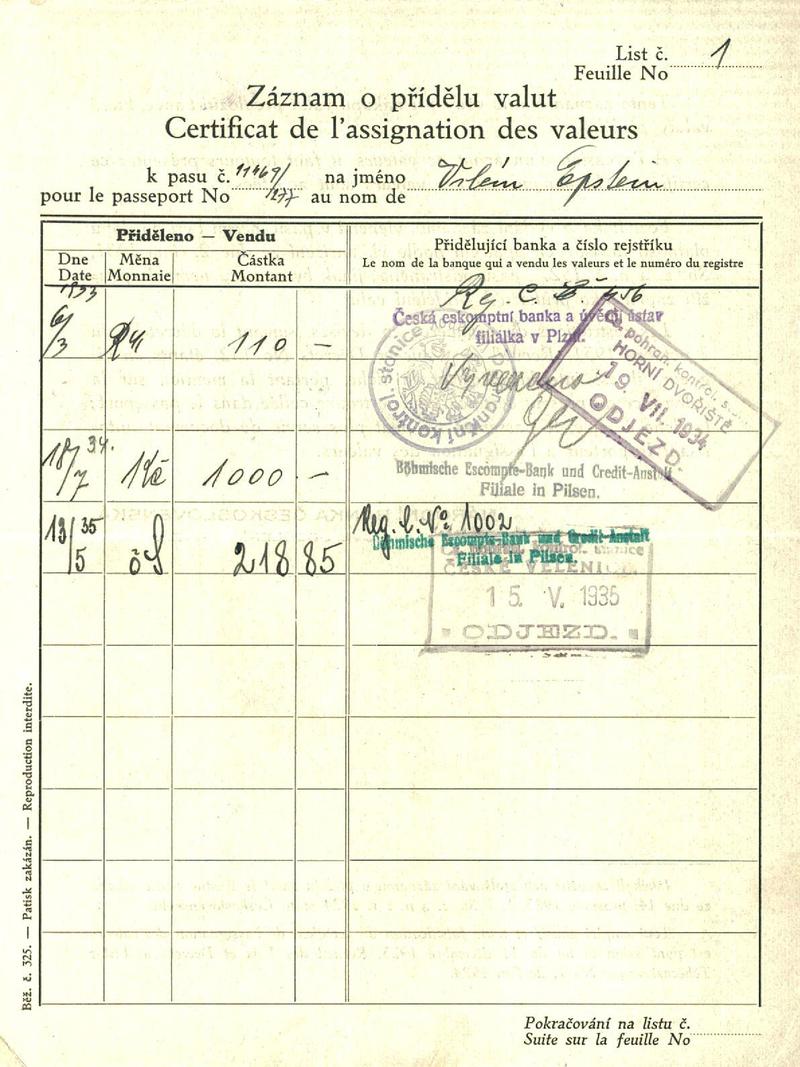 List č. 1
Feuille No
Záznam o přídělu valut
Certificat de l'assignation des valeurs
k pasu č. 11469/277 na jméno Vilém Epstein
pour le passeport No au nom de
Přiděleno — Vendu
Dne Měna Částka
Date Monnaie Montant
Přidělující banka a číslo rejstříku
Le nom de la banque qui a vendu les valeurs et le numéro du registre
1933
6/3 RM 110 —
Česká eskomptní banka a úvěrní ústav
filiálka v Plzni.
pohran. kontrol. s
HORNÍ DVOŘIŠTĚ
19. VII. 1934
ODJEZD.
18/7 34. Kč 1000 —
Böhmische Escompte-Bank und Credit-Anstalt
Filiale in Pilsen.
13/5 35 öS 218 85
Reg. č. No 1002
Böhmische Escompte-Bank und Credit-Anstalt
Filiale in Pilsen.
pohran. kontrol. stanice
ČESKÉ VELENICE
15. V. 1935
ODJEZD.
Běž. č. 325. — Patisk zakázán. — Reproduction interdite.
Pokračování na listu č.
Suite sur la feuille No